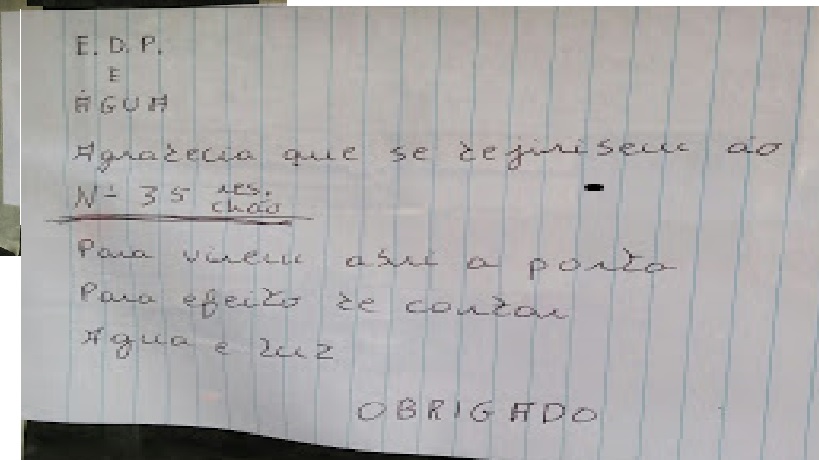 E. D. P.
E
ÁGUA
Agradecia que se dejirisem ao
Nº 35 res. chão
Para virem abri a porta
Para efeito de contar
Agua e luz
OBRIGADO